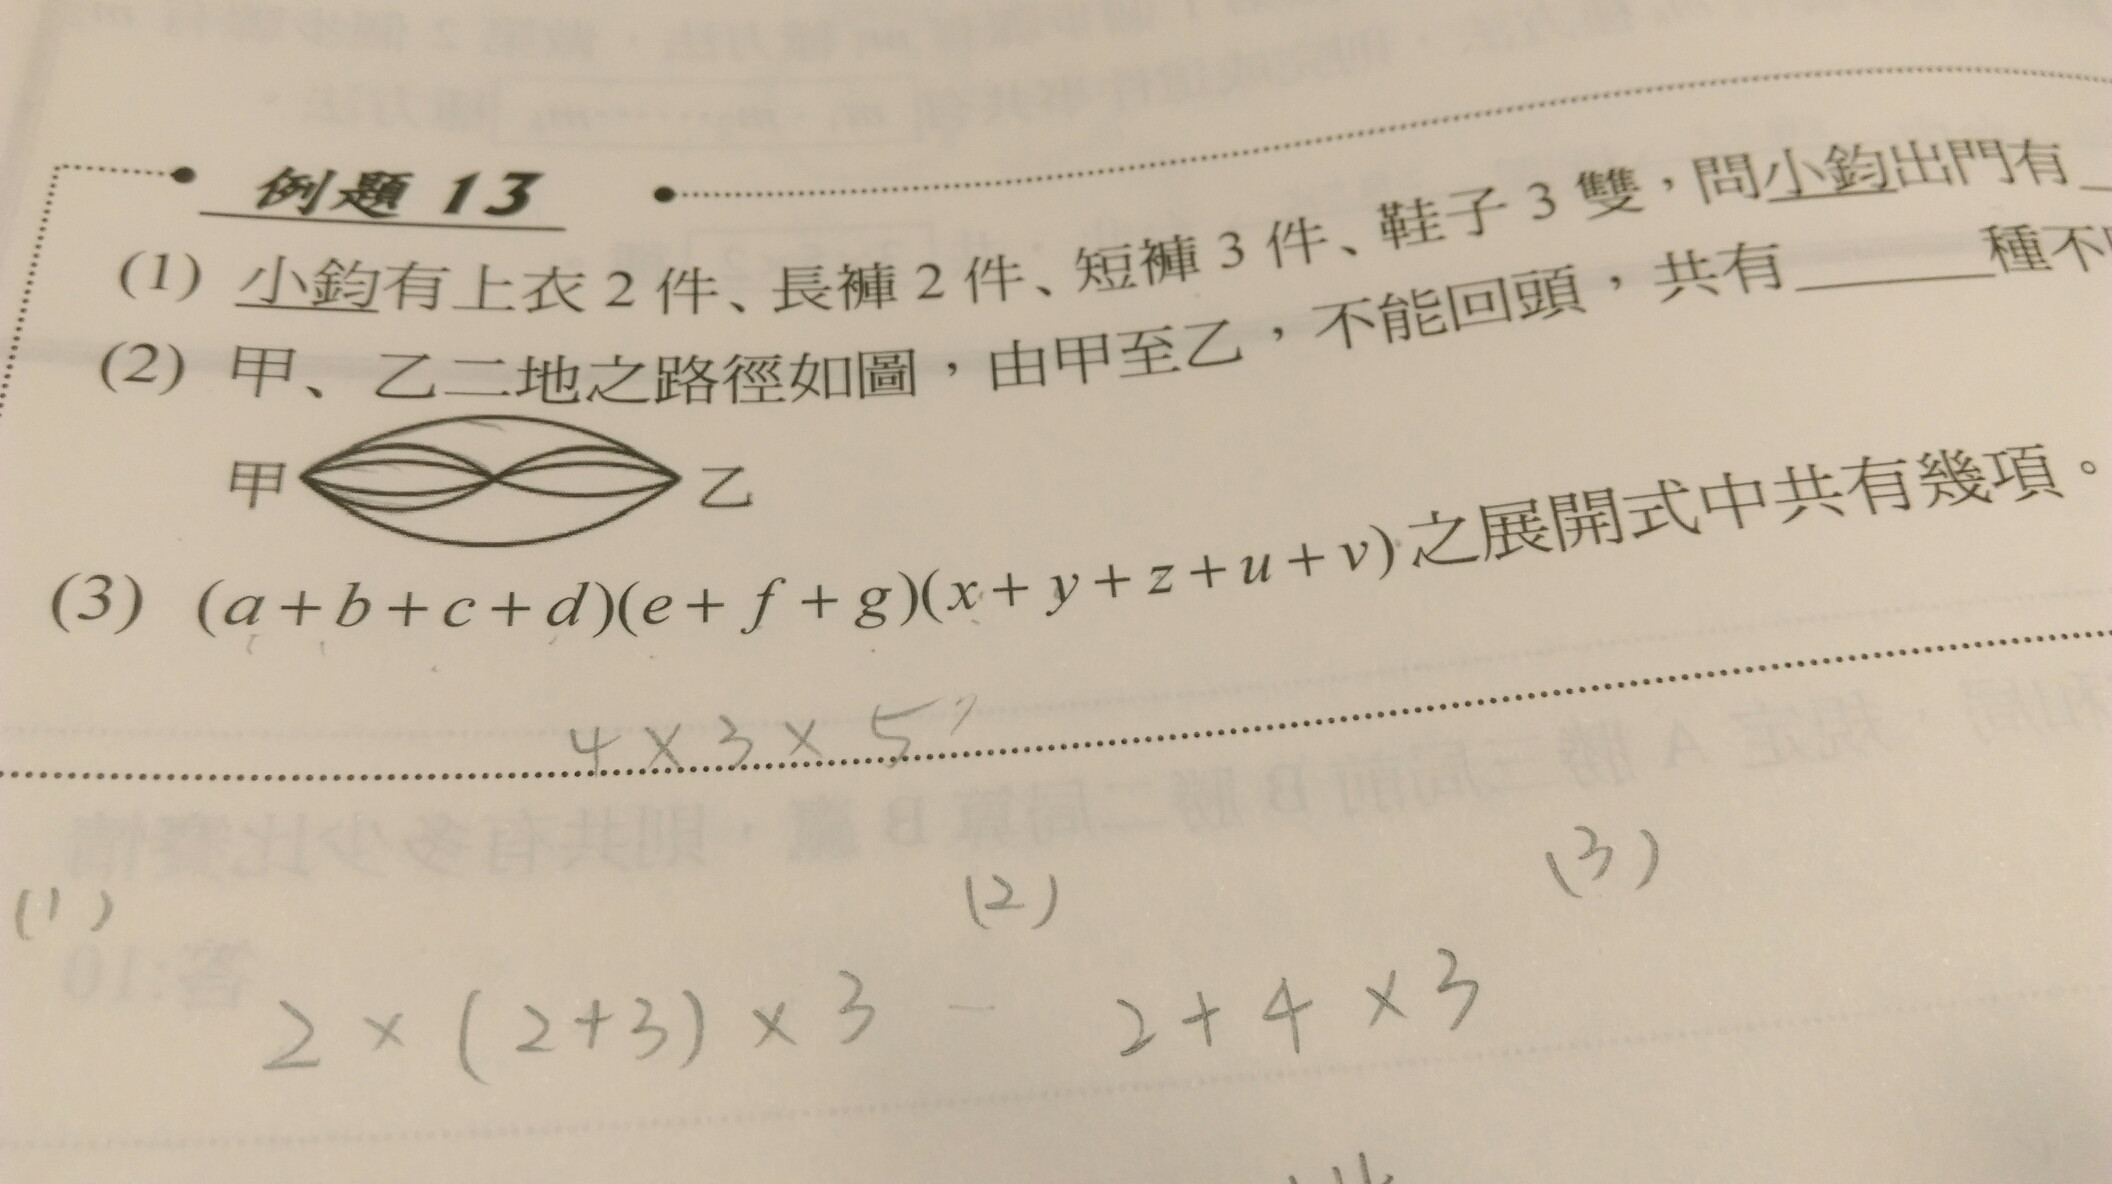 例題 13
(1) 小鈞有上衣 2 件、長褲 2 件、短褲 3 件、鞋子 3 雙，問小鈞出門有
(2) 甲、乙二地之路徑如圖，由甲至乙，不能回頭，共有______種不
甲 乙
(3) (a+b+c+d)(e+f+g)(x+y+z+u+v)之展開式中共有幾項。
4×3×5
(1) (2) (3)
2×(2+3)×3 2+4×3